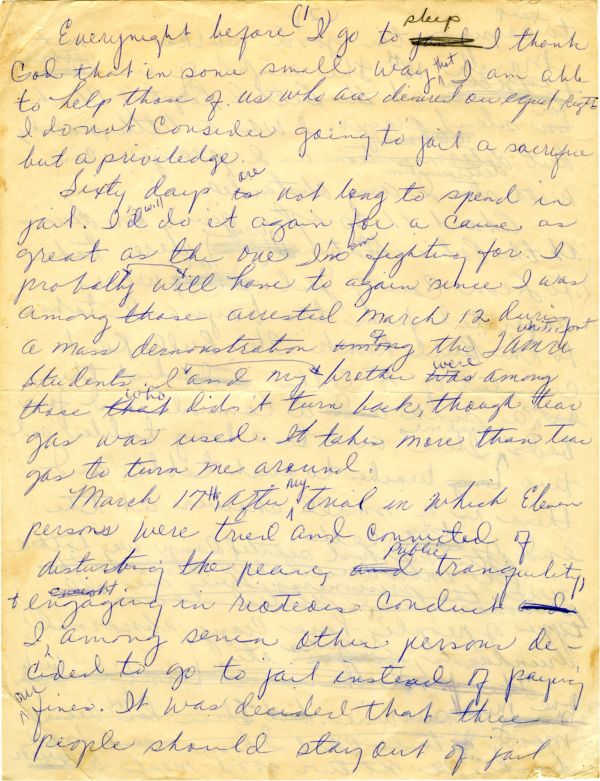 (1)
Everynight before I go to sleep I thank
God that in some small way that I am able
to help those of us who are denied our equal rights
I do not consider going to jail a sacrifice
but a priviledge.
Sixty days are not long to spend in
jail. I'd will do it again for a cause as
great as the one I'm am fighting for. I
probally will have to again since I was
among those arrested March 12 during
a mass demonstration of among the FAMU
Students. I and my brother were was among
those who that didn't turn back, though tear
gas was used. It takes more than tear
gas to turn me around.
March 17th, after my trial in which Eleven
persons were tried and convicted of
disturbing the peace, and public tranquility,
+ engaging in rioteous conduct and
I, among seven other persons de-
cided to go to jail instead of paying
our fines. It was decided that three
people should stay out of jail